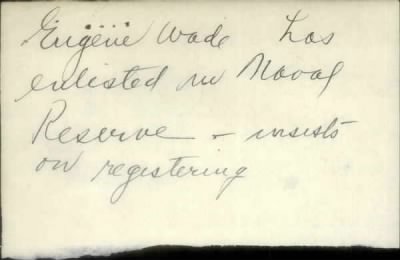 Eugene Wade has
enlisted in Naval
Reserve - insists
on registering